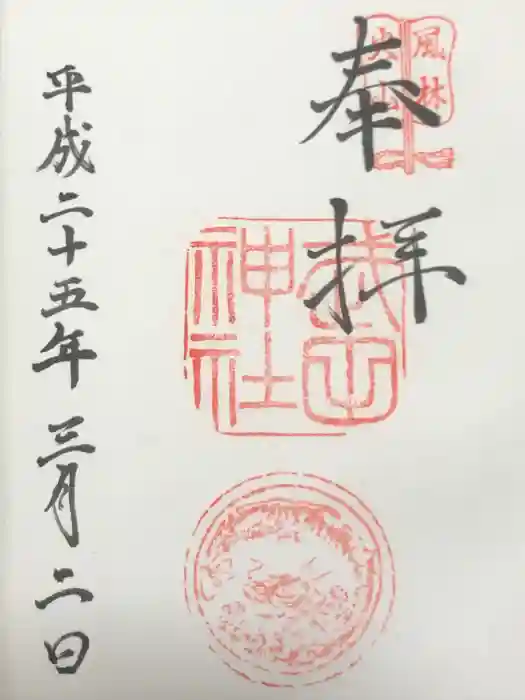 奉拝
風林
火山
武田
神社
平成二十五年 三月二日